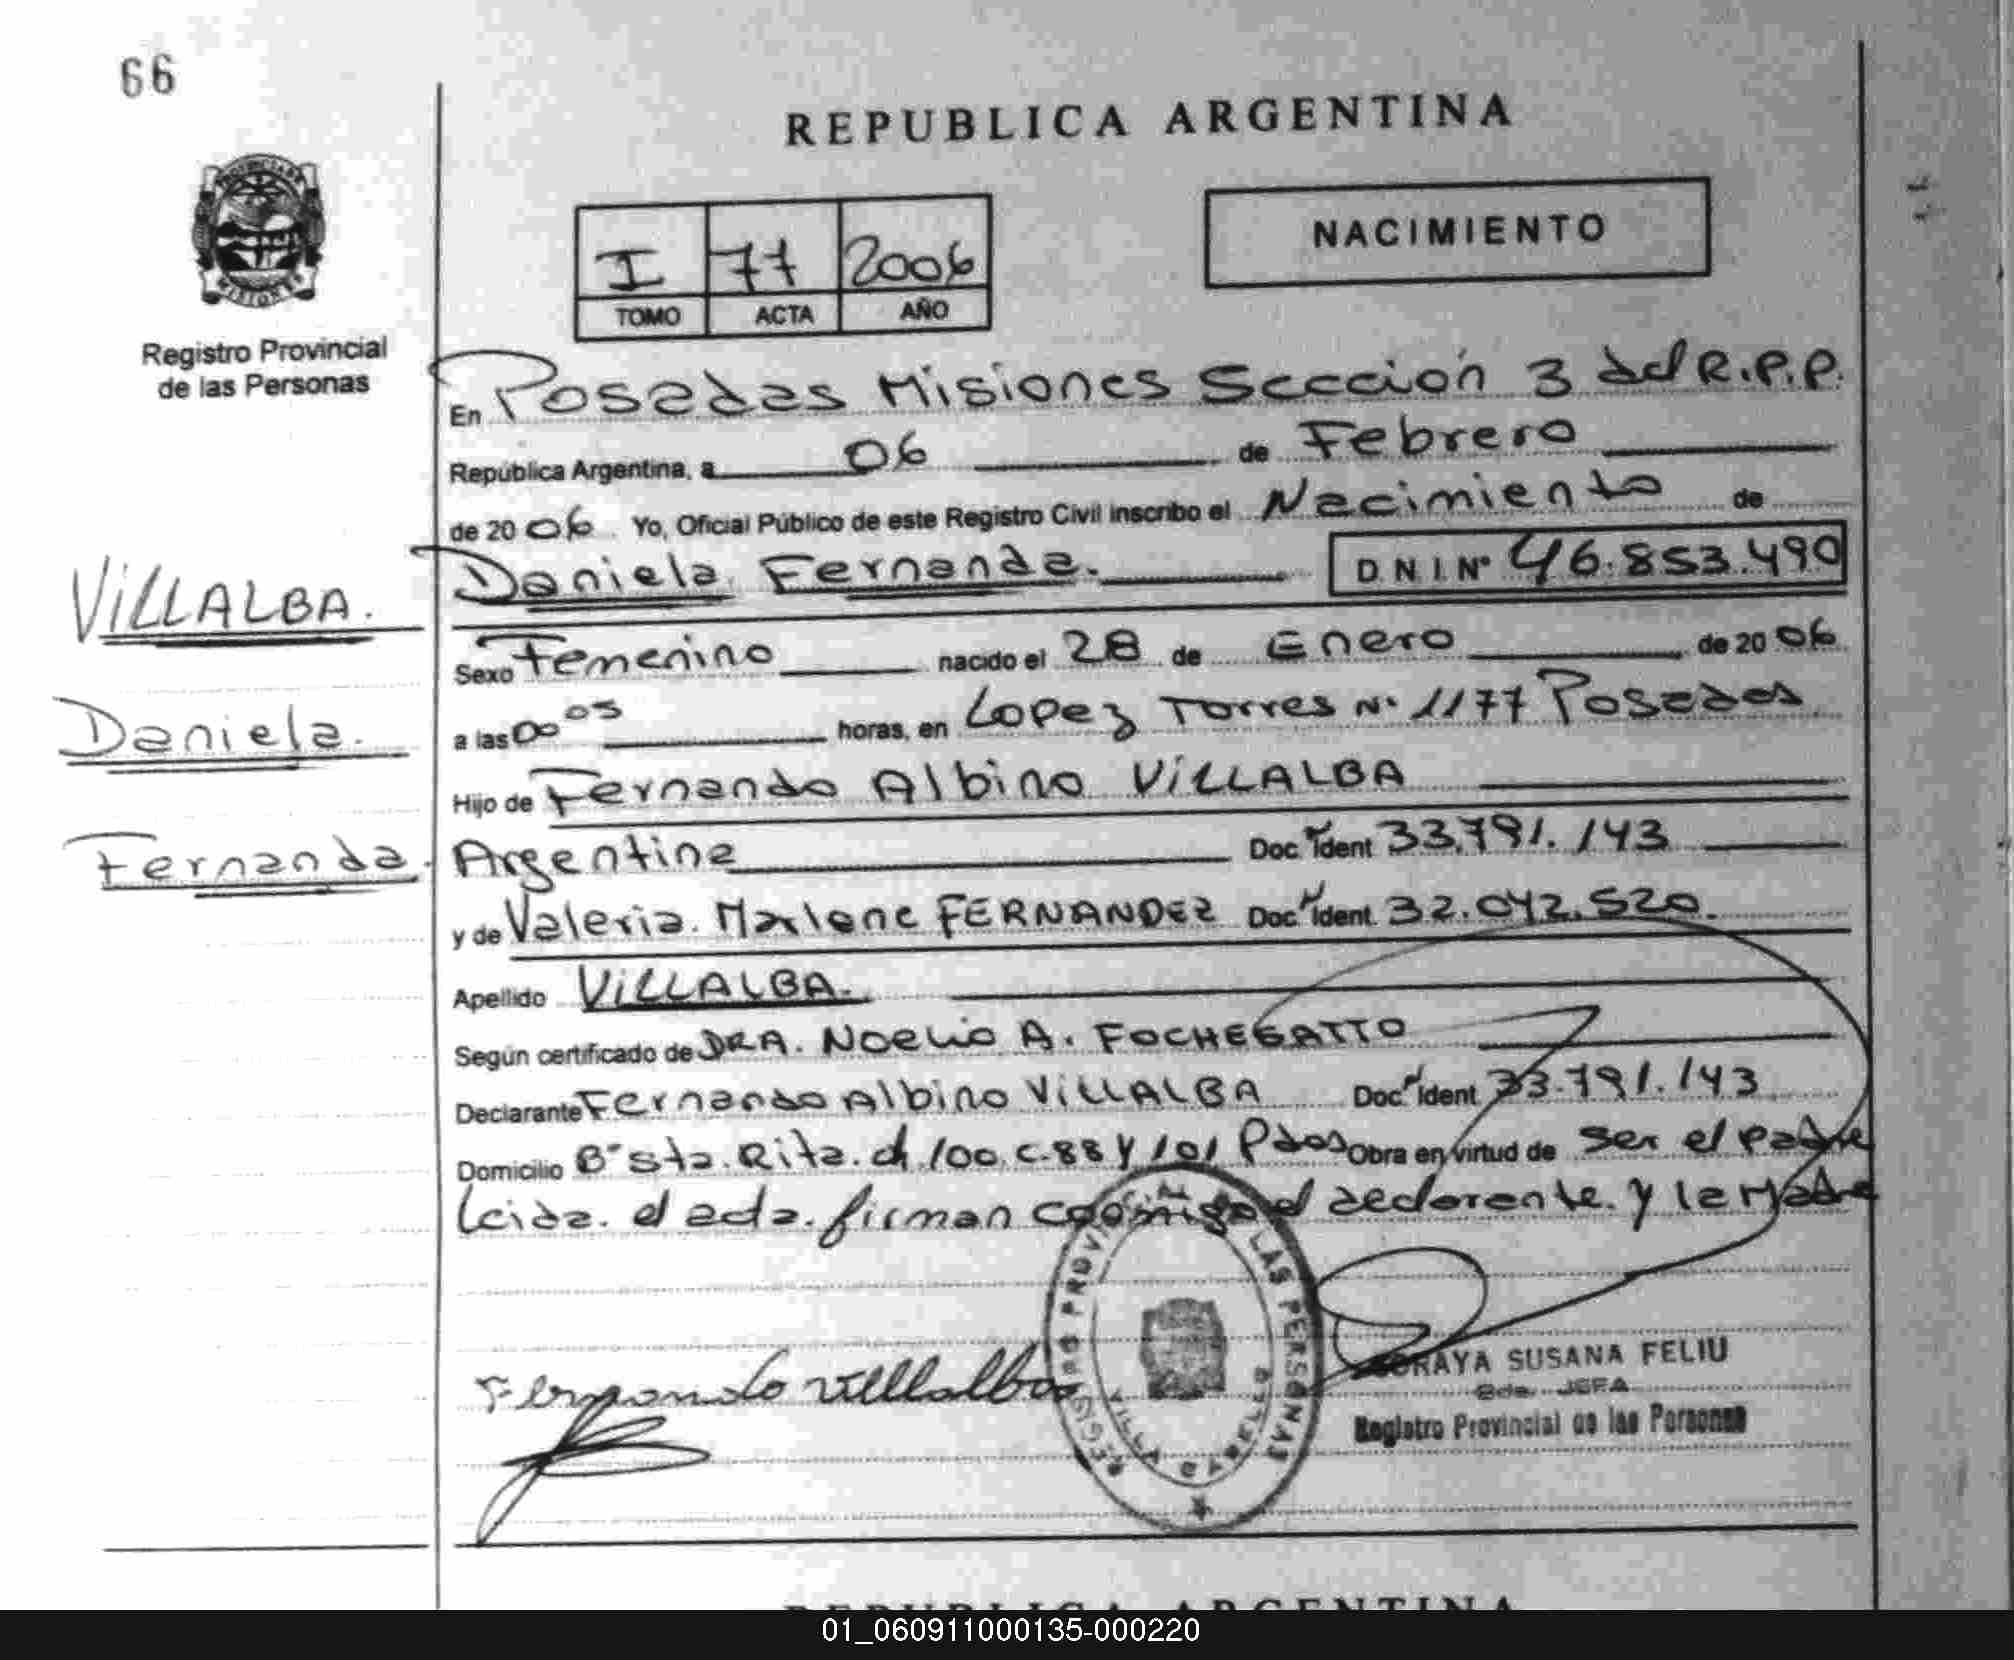 66
REPUBLICA ARGENTINA
PROVINCIA DE
MISIONES
Registro Provincial
de las Personas
I 77 2006
TOMO ACTA AÑO
NACIMIENTO
En Posadas Misiones Sección 3 del R.P.P.
República Argentina, a 06 de Febrero
de 2006 Yo, Oficial Público de este Registro Civil inscribo el Nacimiento de
Daniela Fernanda. D.N.I.Nº 46.853.490
VILLALBA.
Daniela.
Fernanda.
Sexo Femenino nacido el 28 de Enero de 2006
a las 00 05 horas, en Lopez Torres Nº 1177 Posadas
Hijo de Fernando Albino VILLALBA
Argentina Doc. Ident 33.791.143
y de Valeria Marlene FERNANDEZ Doc. Ident. 32.042.520.
Apellido VILLALBA.
Según certificado de DRA. Noelia A. FOCHEGATTO
Declarante Fernando Albino VILLALBA Doc. Ident 33.791.143
Domicilio Bº Sta. Rita. ch 100 C-88 y 101 Pdas Obra en virtud de ser el padre
Leida el acta firman conmigo el declarante y la Madre
Fernando Villalba
REGISTRO PROVINCIAL DE LAS PERSONAS
VILLA CABELLO
SORAYA SUSANA FELIU
JEFA
Registro Provincial de las Personas
REPUBLICA ARGENTINA
01_060911000135-000220